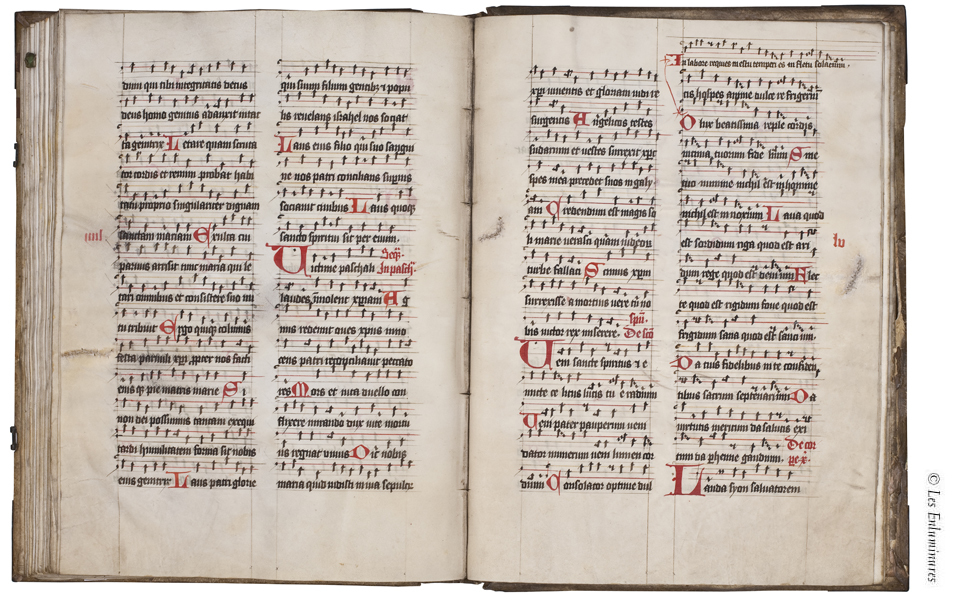 dum qui tibi integritatis decus
deus homo genitus adauxit intac
ta genitrix Letare quam scruta
tor cordis et renum probat habi
taculo proprio singulariter dignam
sanctam mariam Exulta cui
parvus arrisit tunc maria qui le
tari omnibus et consistere suo nu
tu tribuit Ergo quique colimus
festa parvuli xpi propter nos facti
eius que pie matris marie Si
non dei possumus tantam exequi
tardi humilitatem forma sit nobis
eius genitrix Laus patri glorie
iiii
qui suum filium gentibus et popu
lis revelans israhel nos sociat
Laus eius filio qui suo sangui
ne nos patri concilians supernis
sociavit civibus Laus quoque
sancto spiritui sit per evum.
Seq̄.
Victime paschali In pasch.
laudes ymolent xpiani Ag
nus redemit oves xpus inno
cens patri reconciliavit peccato
res Mors et vita duello con
flixere mirando dux vite mortu
us regnat vivus Dic nobis
maria quid vidisti in via sepulcr
xpi viventis et gloriam vidi re
surgentis Angelicos testes
sudarium et vestes surrexit xps
spes mea precedet suos in galy
eam Credendum est magis so
li marie veraci quam iudeor
turbe fallaci Scimus xpm
surrexisse a mortuis vere tu no
bis victor rex miserere. De sco
spu.
Veni sancte spiritus et e
mitte celitus lucis tue radium
Veni pater pauperum veni
dator munerum veni lumen cor
dium Consolator optime dul
In labore requies in estu temperies in fletu solacium.
cis hospes anime dulce refrigeriū
O lux beatissima reple cordis
intima tuorum fidelium Sine
tuo numine nichil est in homine
nichil est innoxium Lava quod
est sordidum riga quod est ari
dum rege quod est devium Flec
te quod est rigidum fove quod est
frigidum sana quod est sauciu.
Da tuis fidelibus in te confiden
tibus sacrum septenarium Da
virtutis meritum da salutis exi
tum da perhenne gaudium. De cor
pe x.
Lauda syon salvatorem
lv
© Les Enluminures